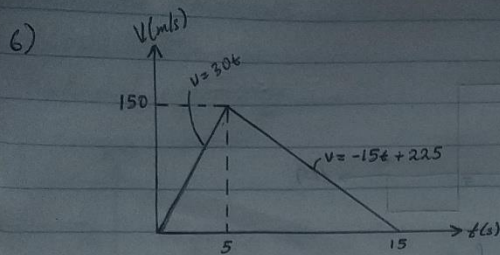 6)
V(m/s)
V=30t
150
V=-15t+225
t(s)
5
15